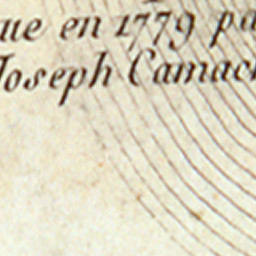 ue en 1779 pa
Joseph Camach